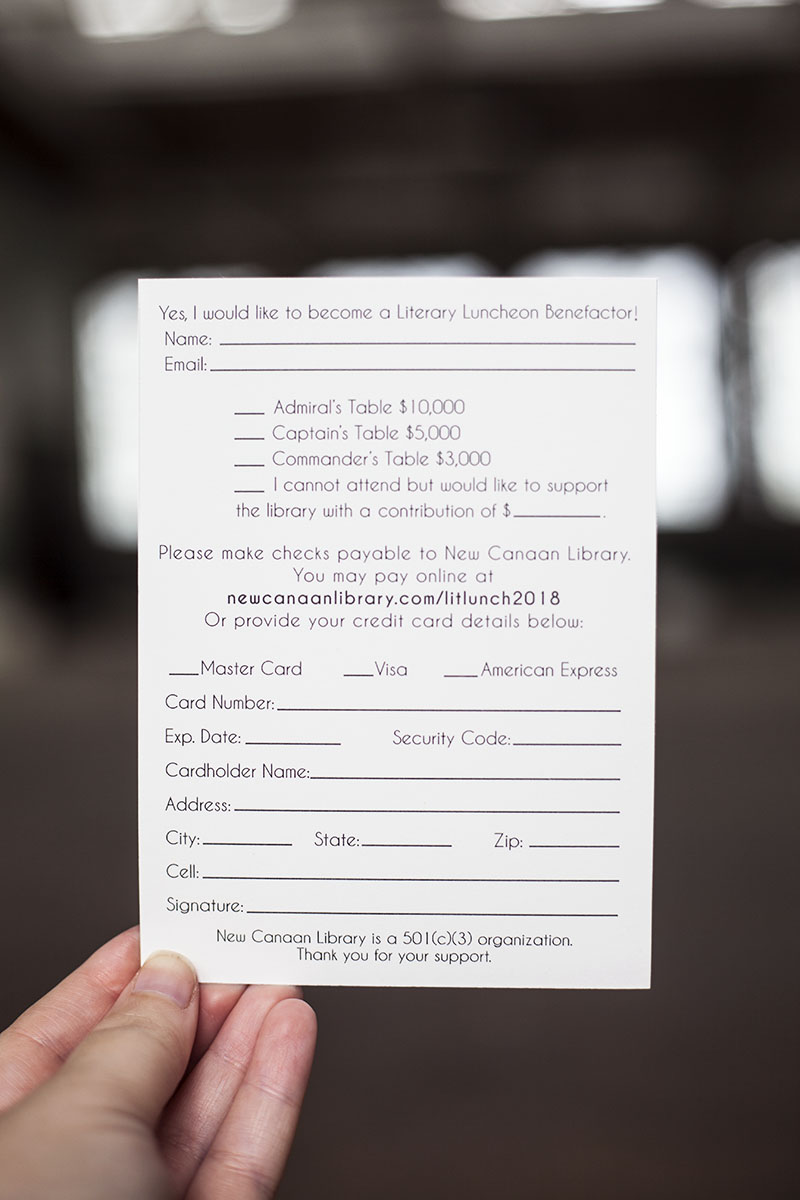 Yes, I would like to become a Literary Luncheon Benefactor!
Name: ____
Email: ____
____ Admiral's Table $10,000
____ Captain's Table $5,000
____ Commander's Table $3,000
____ I cannot attend but would like to support
the library with a contribution of $____.
Please make checks payable to New Canaan Library.
You may pay online at
newcanaanlibrary.com/litlunch2018
Or provide your credit card details below:
____Master Card ____Visa ____American Express
Card Number:____
Exp. Date:____ Security Code:____
Cardholder Name:____
Address:____
City:____ State:____ Zip: ____
Cell:____
Signature:____
New Canaan Library is a 501(c)(3) organization.
Thank you for your support.